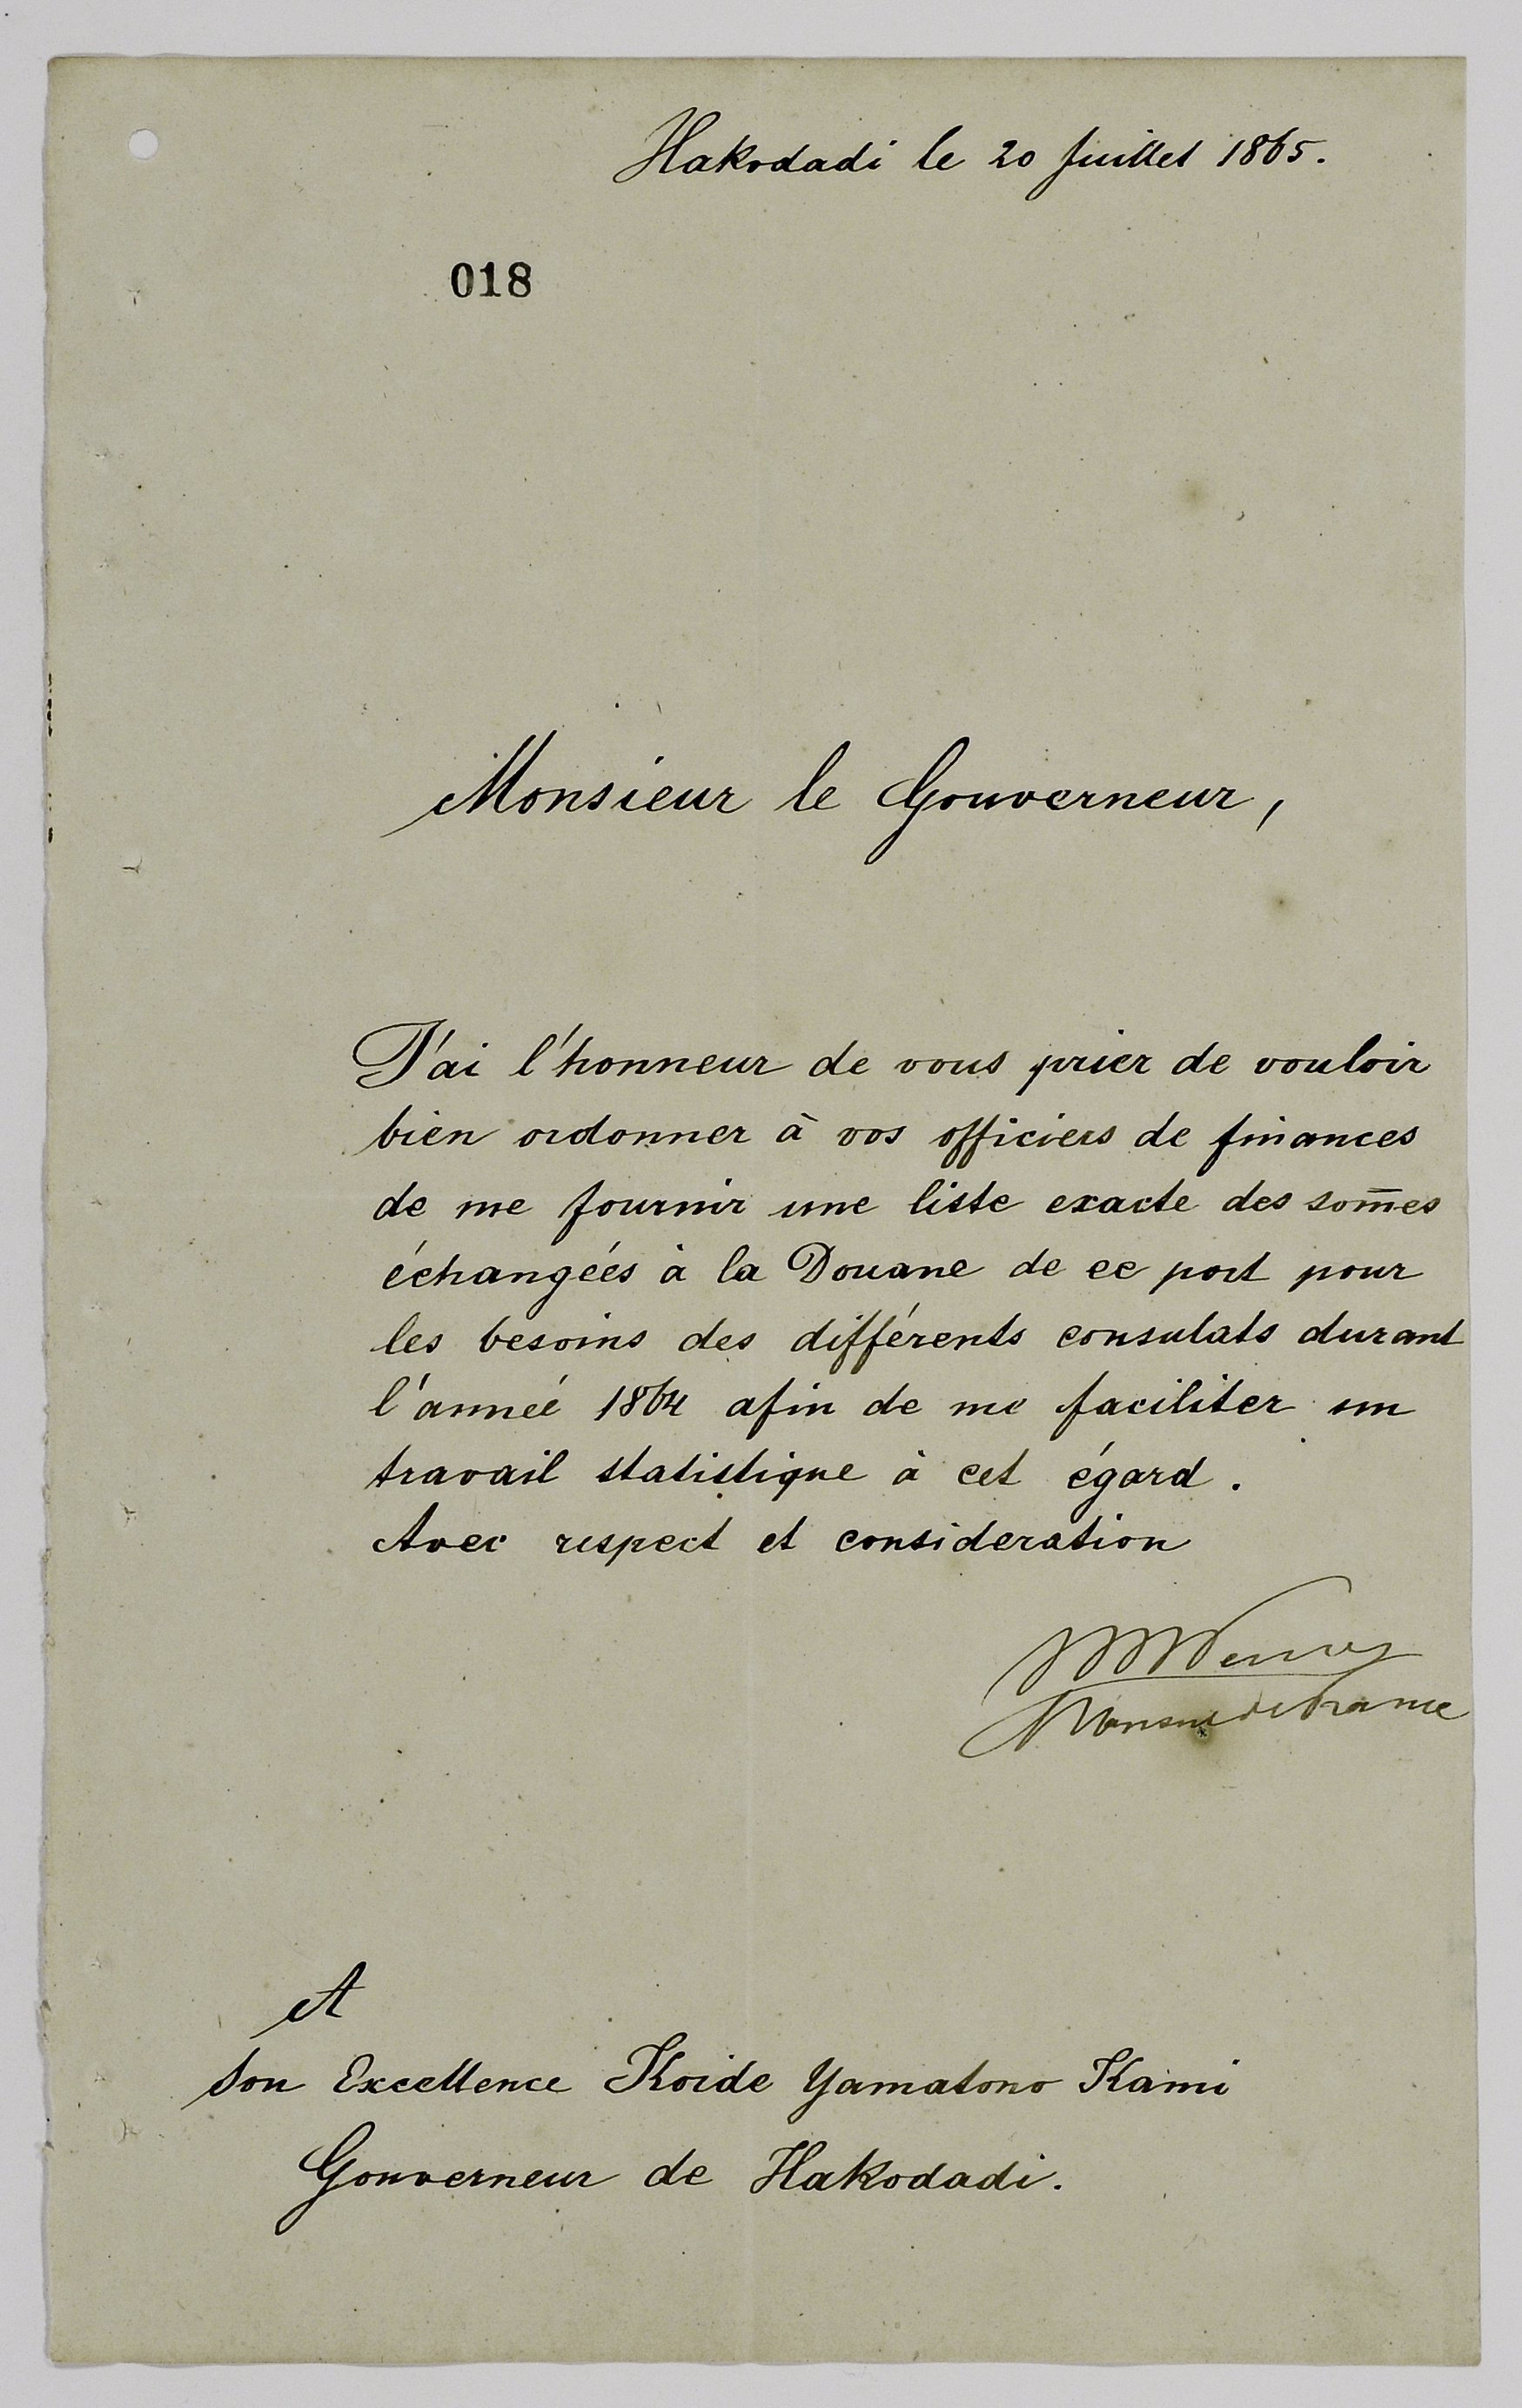 Hakodadi le 20 Juillet 1865.
018
Monsieur le Gouverneur,
J'ai l'honneur de vous prier de vouloir
bien ordonner à vos officiers de finances
de me fournir une liste exacte des som̄es
échangéés à la Douane de ce port pour
les besoins des différents consulats durant
l'anneé 1864 afin de me faciliter un
travail statistique à cet égard.
Avec respect et consideration
de France
A
Son Excellence Koide Yamatono Kami
Gouverneur de Hakodadi.